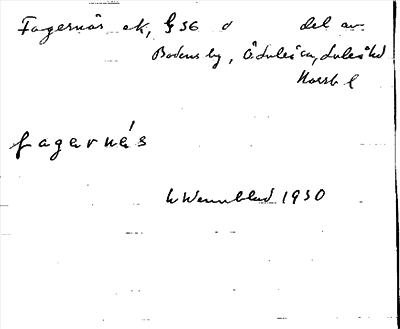 Fagernäs ek, § 36 d del av
Bodens by, Ö. Luleå sn, Luleå td
Norrb l
fagernés
W Wennblad 1930